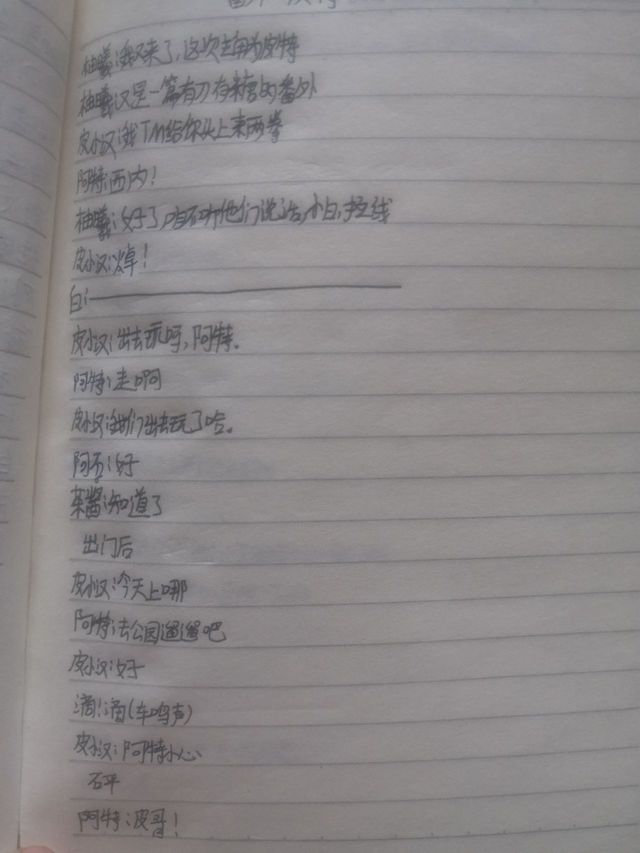 柚曦:我又来了,这次主角为皮特
柚曦:又是一篇有刀有糖的番外
皮汉:我TM给你头上来两拳
阿特:西内!
柚曦:好了,咱不听他们说话,小白,拉线
皮汉:焯!
白:
皮汉:出去玩吗,阿特。
阿特:走啊
皮汉:我们出去玩了哈。
阿石:好
莱酱:知道了
出门后
皮汉:今天上哪
阿特:去公园遛遛吧
皮汉:好
滴!滴(车鸣声)
皮汉:阿特小心
砰
阿特:皮哥!